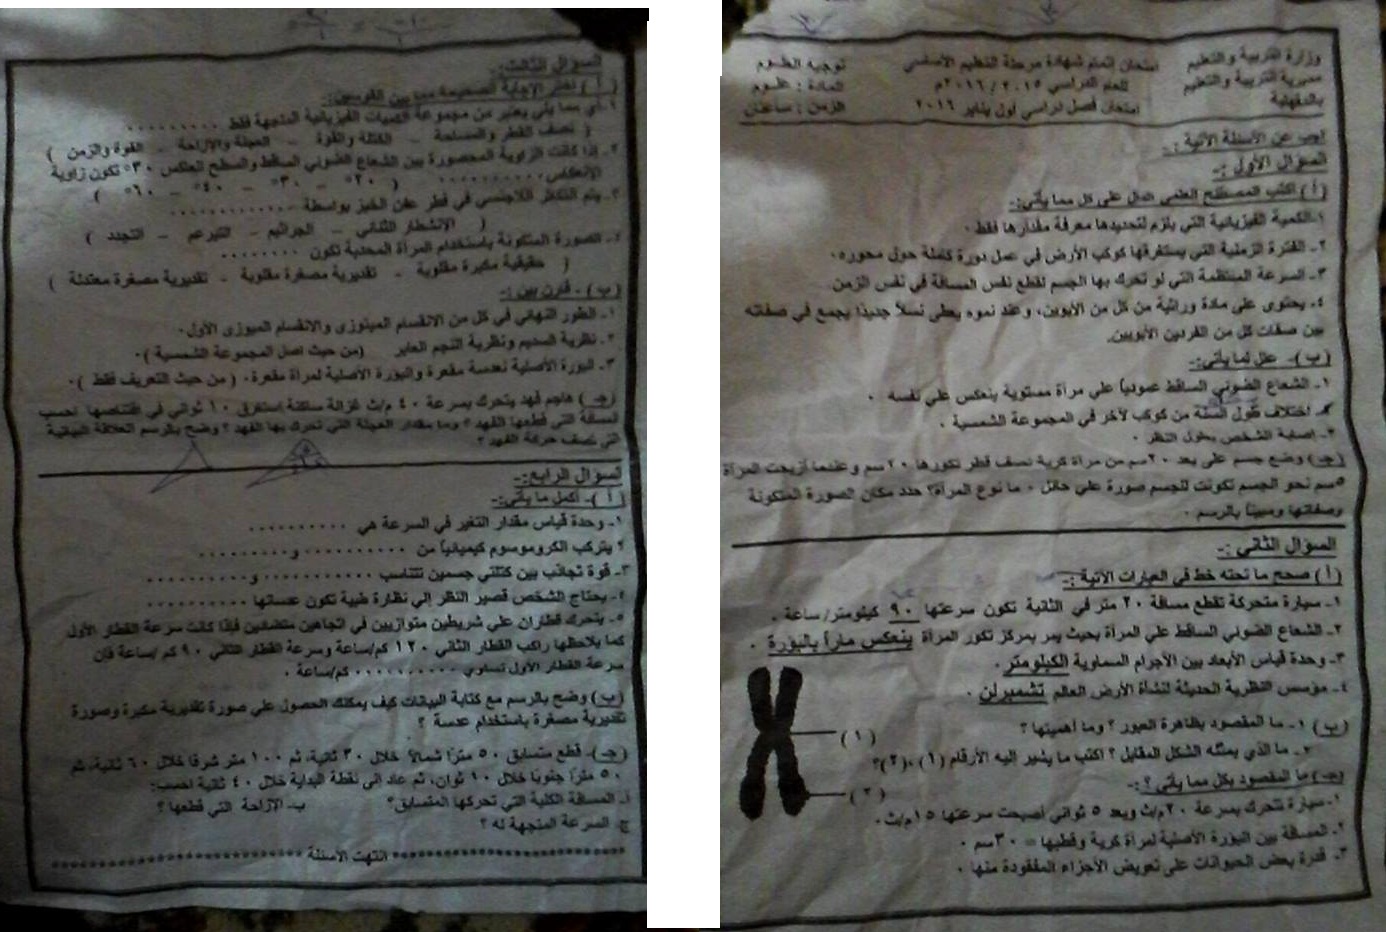 وزارة التربية والتعليم
مديرية التربية والتعليم
بالدقهلية
امتحان إتمام شهادة مرحلة التعليم الأساسي
للعام الدراسي ٢٠١٥ / ٢٠١٦م
امتحان فصل دراسي أول يناير ٢٠١٦
توجيه العلوم
المادة : علوم
الزمن : ساعتان
أجب عن الأسئلة الآتية :-
السؤال الأول :-
( أ ) اكتب المصطلح العلمي الدال على كل مما يأتي:-
١- الكمية الفيزيائية التي يلزم لتحديدها معرفة مقدارها فقط .
٢- الفترة الزمنية التي يستغرقها كوكب الأرض في عمل دورة كاملة حول محوره.
٣- السرعة المنتظمة التي لو تحرك بها الجسم لقطع نفس المسافة في نفس الزمن
٤- يحتوى على مادة وراثية من كل من الأبوين، وعند نموه يعطى نسلاً جديدًا يجمع في صفاته
بين صفات كل من الفردين الأبويين.
( ب )- علل لما يأتي:-
١- الشعاع الضوئي الساقط عمودياً على مرآة مستوية ينعكس على نفسه .
٢- اختلاف طول السنة من كوكب لآخر في المجموعة الشمسية .
٣- إصابة الشخص بطول النظر .
(جـ) وضع جسم على بعد ٢٠سم من مرآة كرية نصف قطر تكورها ٢٠سم وعندما أزيحت المرآة
٥سم نحو الجسم تكونت للجسم صورة على حائل . ما نوع المرآة؟ حدد مكان الصورة المتكونة
وصفاتها ومبيناً بالرسم .
السؤال الثاني :-
( أ ) صحح ما تحته خط في العبارات الآتية :-
١- سيارة متحركة تقطع مسافة ٢٠ متر في الثانية تكون سرعتها ٩٠ كيلومتر/ساعة .
٢- الشعاع الضوئي الساقط على المرآة بحيث يمر بمركز تكور المرآة ينعكس ماراً بالبؤرة .
٣- وحدة قياس الأبعاد بين الأجرام السماوية الكيلومتر.
٤- مؤسس النظرية الحديثة لنشأة الأرض العالم تشمبرلن .
( ب ) ١- ما المقصود بظاهرة العبور ؟ وما أهميتها ؟
٢- ما الذي يمثله الشكل المقابل ؟ اكتب ما يشير إليه الأرقام (١) ،(٢)؟
( ١ )
( ٢ )
(جـ) ما المقصود بكل مما يأتي ؟ :-
١- سيارة تتحرك بسرعة ٢٠م/ث وبعد ٥ ثواني أصبحت سرعتها ١٥م/ث.
٢- المسافة بين البؤرة الأصلية لمرآة كرية وقطبها = ٣٠سم .
٣- قدرة بعض الحيوانات على تعويض الأجزاء المفقودة منها .
السؤال الثالث:-
( أ ) اختر الإجابة الصحيحة مما بين القوسين:-
١- أي مما يلي يعتبر من مجموعة الكميات الفيزيائية المتجهة فقط ..........
( نصف القطر والمساحة - الكتلة والقوة - العجلة والإزاحة - القوة والزمن )
٢- إذا كانت الزاوية المحصورة بين الشعاع الضوئي الساقط والسطح العاكس ٣٠° تكون زاوية
الانعكاس .......... ( ٢٠° - ٣٠° - ٤٠° - ٦٠° )
٣- يتم التكاثر اللاجنسي في فطر عفن الخبز بواسطة ..........
( الانشطار الثنائي - الجراثيم - التبرعم - التجدد )
٤- الصورة المتكونة باستخدام المرآة المحدبة تكون ..........
( حقيقية مكبرة مقلوبة - تقديرية مصغرة مقلوبة - تقديرية مصغرة معتدلة )
( ب ) - قارن بين :-
١- الطور النهائي في كل من الانقسام الميتوزى والانقسام الميوزى الأول.
٢- نظرية السديم ونظرية النجم العابر (من حيث أصل المجموعة الشمسية ).
٣- البؤرة الأصلية لعدسة مقعرة والبؤرة الأصلية لمرآة مقعرة. ( من حيث التعريف فقط ).
(جـ) هاجم فهد يتحرك بسرعة ٤٠ م/ث غزالة ساكنة استغرق ١٠ ثواني في اقتناصها احسب
المسافة التي قطعها الفهد ؟ وما مقدار العجلة التي تحرك بها الفهد ؟ وضح بالرسم العلاقة البيانية
التي تصف حركة الفهد ؟
السؤال الرابع:-
( أ )- أكمل ما يأتي:-
١- وحدة قياس مقدار التغير في السرعة هي ..........
٢ يتركب الكروموسوم كيميائياً من .......... و..........
٣- قوة تجاذب بين كتلتي جسمين تتناسب .......... و..........
٤- يحتاج الشخص قصير النظر إلى نظارة طبية تكون عدساتها ..........
٥- يتحرك قطاران على شريطين متوازيين في اتجاهين متضادين فإذا كانت سرعة القطار الأول
كما يلاحظها راكب القطار الثاني ١٢٠ كم/ساعة وسرعة القطار الثاني ٩٠ كم /ساعة فإن
سرعة القطار الأول تساوي .......... كم/ساعة .
(ب) وضح بالرسم مع كتابة البيانات كيف يمكنك الحصول على صورة تقديرية مكبرة وصورة
تقديرية مصغرة باستخدام عدسة ؟
(جـ)- قطع متسابق ٥٠ مترًا شمالاً خلال ٣٠ ثانية، ثم ١٠٠ متر شرقا خلال ٦٠ ثانية، ثم
٥٠ مترًا جنوبًا خلال ١٠ ثوان، ثم عاد إلى نقطة البداية خلال ٤٠ ثانية احسب:
أ- المسافة الكلية التي تحركها المتسابق؟ ب- الإزاحة التي قطعها ؟
ج- السرعة المتجهة له ؟
******************** انتهت الأسئلة ********************